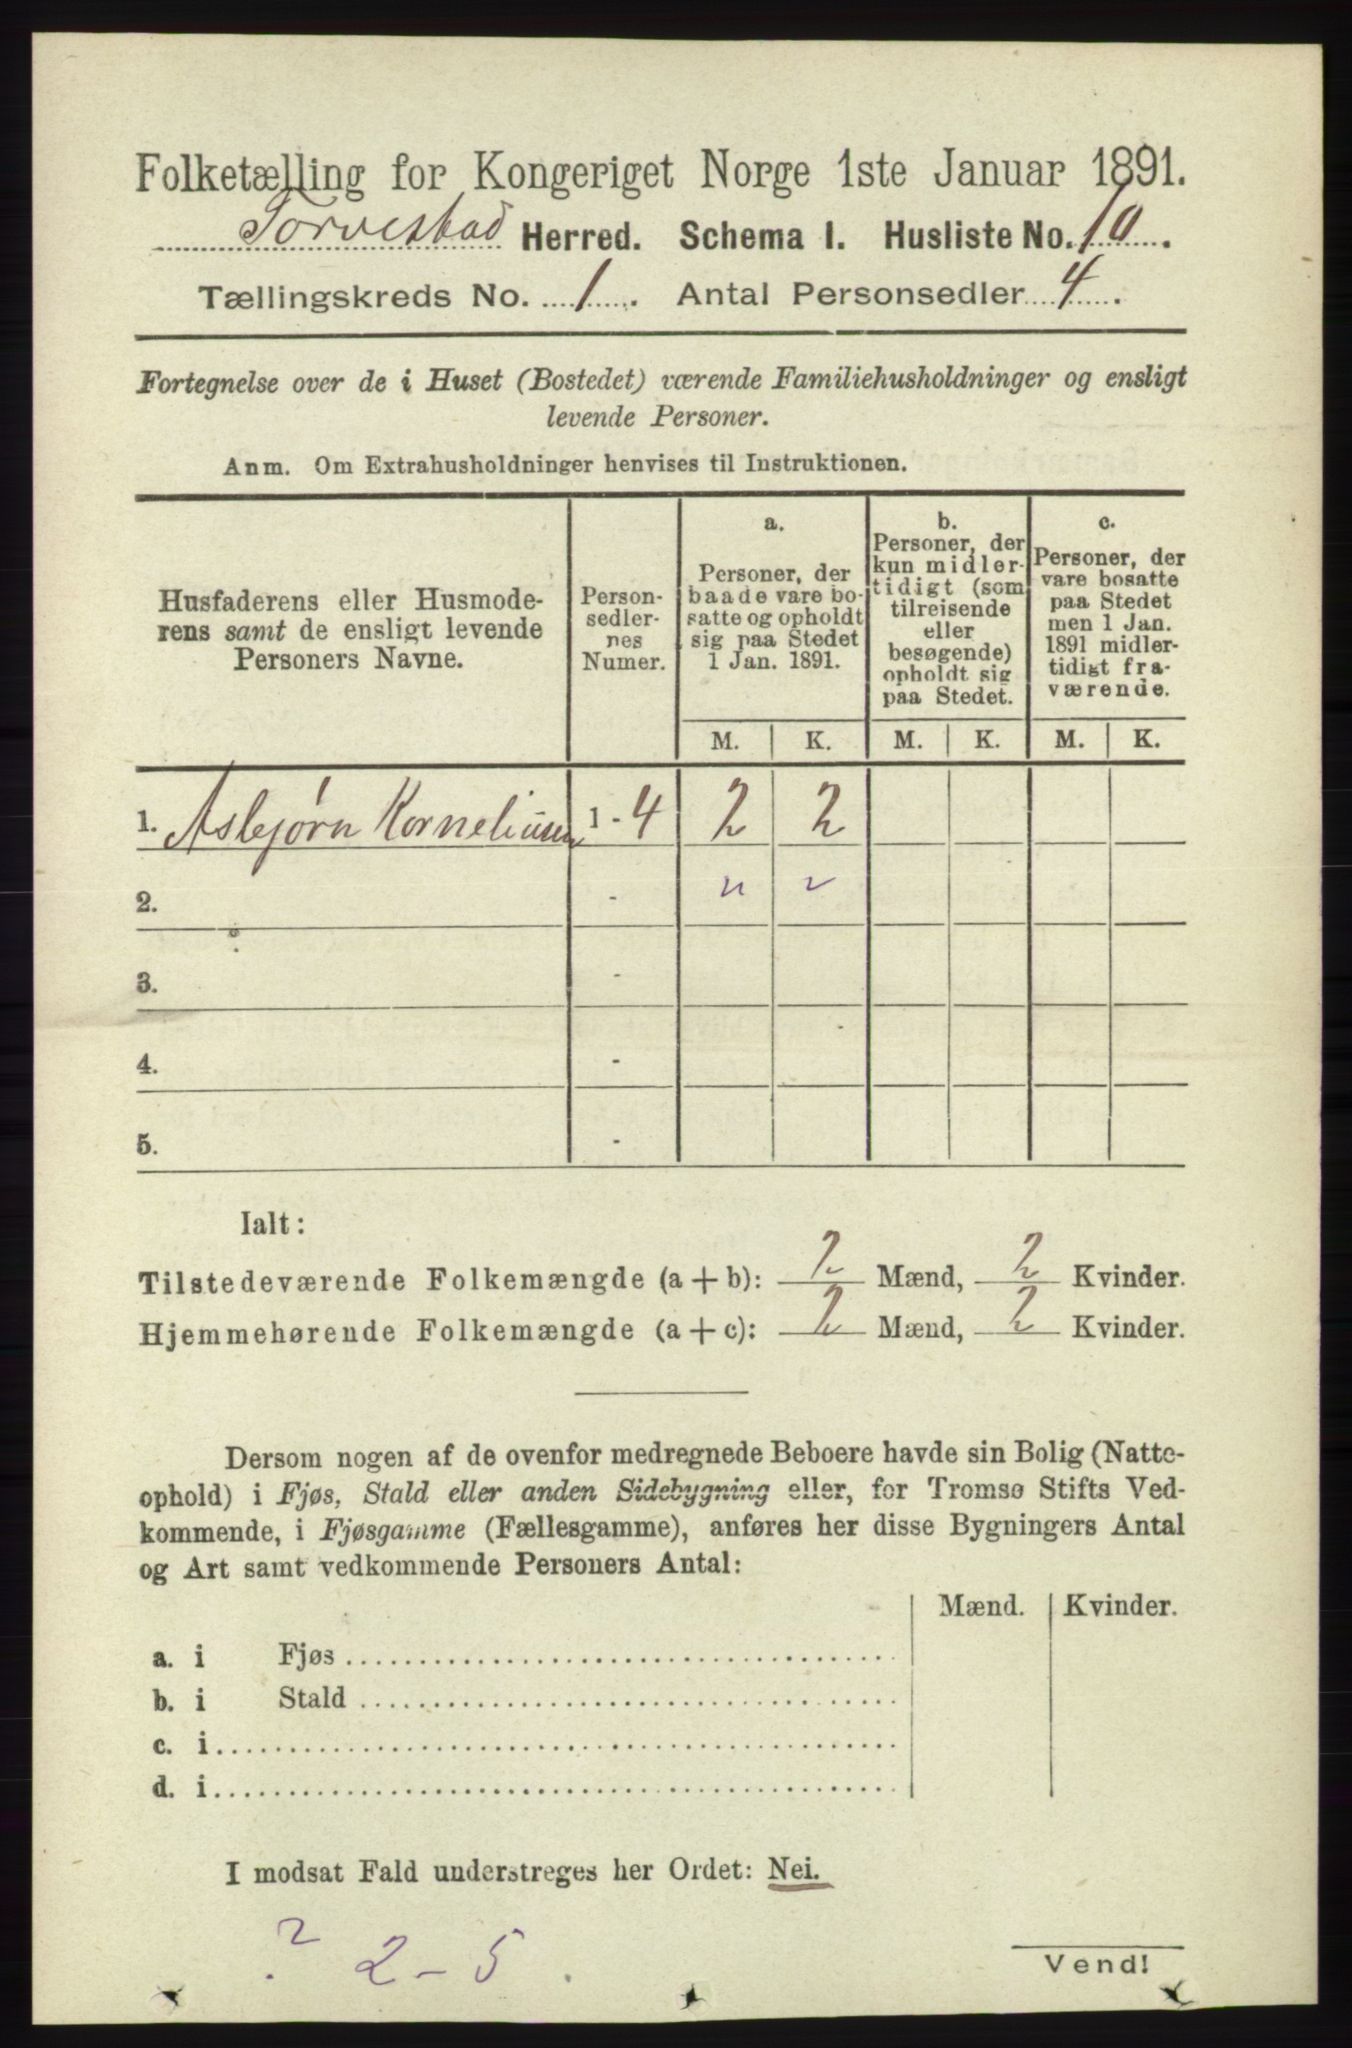 Folketælling for Kongeriget Norge 1ste Januar 1891.
Torvestad Herred. Schema I. Husliste No. 10.
Tællingskreds No. 1. Antal Personsedler 4.
Fortegnelse over de i Huset (Bostedet) værende Familiehusholdninger og ensligt
levende Personer.
Anm. Om Extrahusholdninger henvises til Instruktionen.
Husfaderens eller Husmode-
rens samt de ensligt levende
Personers Navne.
Person-
sedler-
nes
Numer.
a.
Personer, der
baade vare bo-
satte og opholdt
sig paa Stedet
1 Jan. 1891.
b.
Personer, der
kun midler-
tidigt (som
tilreisende
eller
besøgende)
opholdt sig
paa Stedet.
c.
Personer, der
vare bosatte
paa Stedet
men 1 Jan.
1891 midler-
tidigt fra-
værende.
M. K. M. K. M. K.
1. Asbejørn Korneliusen 1 - 4 2 2
2. -
3. -
4. -
5. -
Ialt:
Tilstedeværende Folkemængde (a + b): 2 Mænd, 2 Kvinder.
Hjemmehørende Folkemængde (a + c): 2 Mænd, 2 Kvinder.
Dersom nogen af de ovenfor medregnede Beboere havde sin Bolig (Natte-
ophold) i Fjøs, Stald eller anden Sidebygning eller, for Tromsø Stifts Ved-
kommende, i Fjøsgamme (Fællesgamme), anføres her disse Bygningers Antal
og Art samt vedkommende Personers Antal:
Mænd. Kvinder.
a. i Fjøs
b. i Stald
c. i
d. i
I modsat Fald understreges her Ordet: Nei.
? 2 - 5.
Vend!